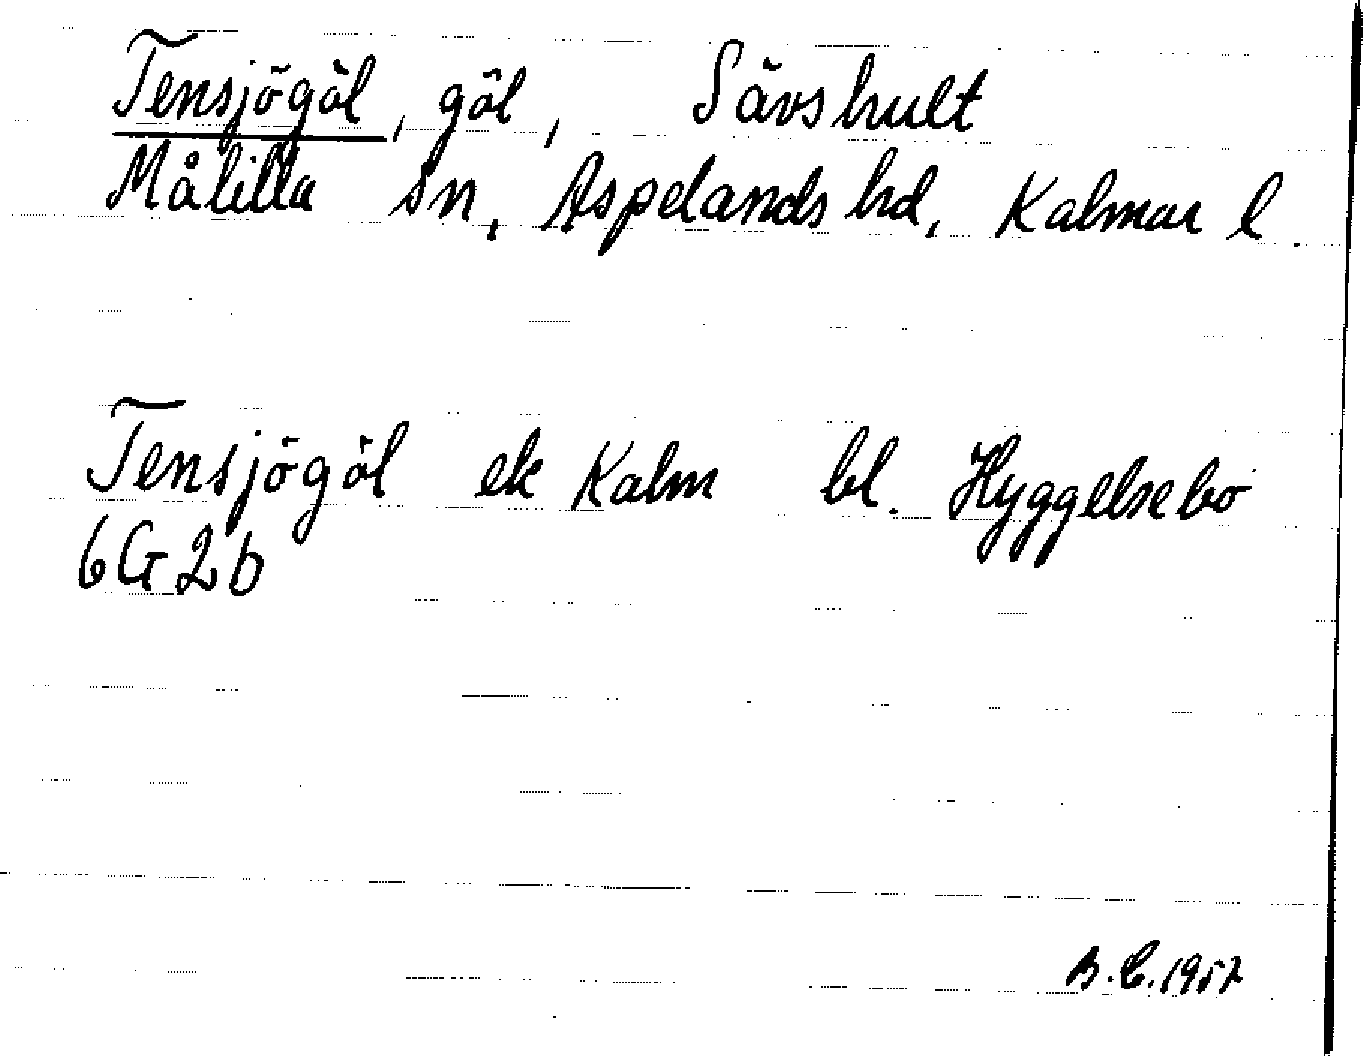 Tensjögöl, göl, Sävshult
Målilla sn, Aspelands hd, Kalmar l.
Tensjögöl ek Kalm bl. Hyggelsebo
6G2b
B.C. 1957